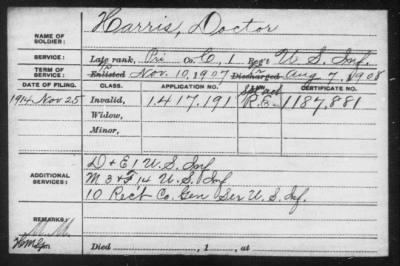 Harris, Doctor
NAME OF SOLDIER:
SERVICE: Late rank, Pri Co. C, 1 Reg't U S Inf.
TERM OF SERVICE: Enlisted Nov. 10, 1907 Discharged Aug 7, 1908
DATE OF FILING. CLASS. APPLICATION NO. CERTIFICATE NO.
1914 Nov 25 Invalid, 1.417.191 R.E. 1187.881
Widow,
Minor,
ADDITIONAL SERVICES:
D + E 1 U.S. Inf
M 3 + F 14 U.S. Inf
10 Rec't Co. Gen Ser U.S. Inf.
REMARKS:
Died , 1 , at